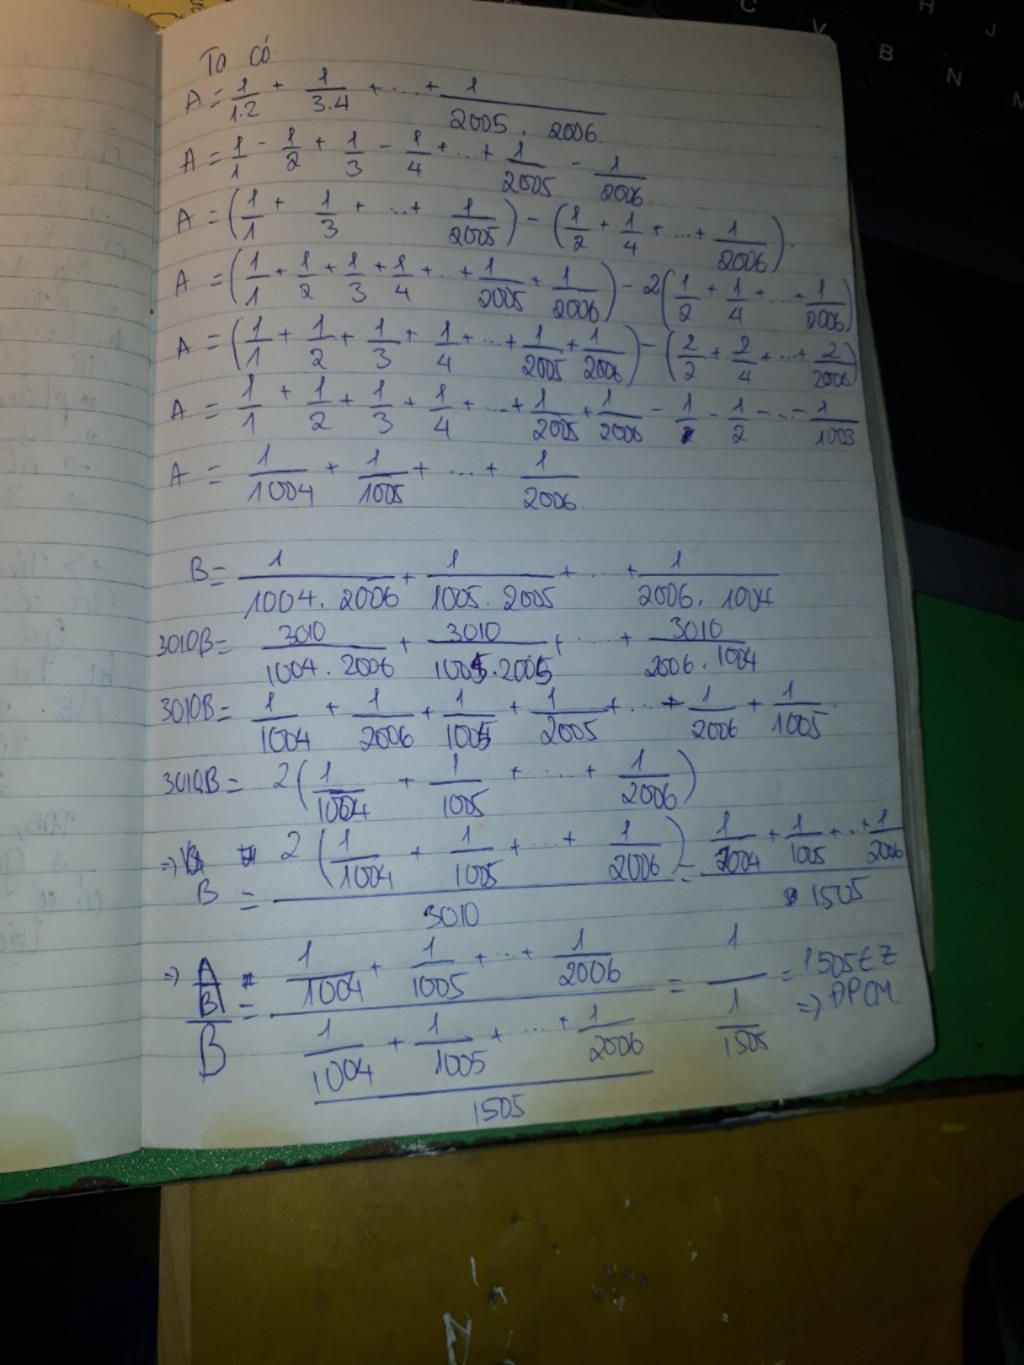 Ta có
A = 1/1.2 + 1/3.4 + ... + 1/2005.2006
A = 1/1 - 1/2 + 1/3 - 1/4 + ... + 1/2005 - 1/2006
A = (1/1 + 1/3 + ... + 1/2005) - (1/2 + 1/4 + ... + 1/2006).
A = (1/1 + 1/2 + 1/3 + 1/4 + ... + 1/2005 + 1/2006) - 2(1/2 + 1/4 + ... + 1/2006)
A = (1/1 + 1/2 + 1/3 + 1/4 + ... + 1/2005 + 1/2006) - (2/2 + 2/4 + ... + 2/2006)
A = 1/1 + 1/2 + 1/3 + 1/4 + ... + 1/2005 + 1/2006 - 1/1 - 1/2 - ... - 1/1003
A = 1/1004 + 1/1005 + ... + 1/2006
B = 1/1004.2006 + 1/1005.2005 + ... + 1/2006.1004
3010B = 3010/1004.2006 + 3010/1005.2005 + ... + 3010/2006.1004
3010B = 1/1004 + 1/2006 + 1/1005 + 1/2005 + ... + 1/2006 + 1/1005
3010B = 2(1/1004 + 1/1005 + ... + 1/2006)
=> B = 2(1/1004 + 1/1005 + ... + 1/2006)/3010 = (1/1004 + 1/1005 + ... + 1/2006)/1505
=> A/B = (1/1004 + 1/1005 + ... + 1/2006)/((1/1004 + 1/1005 + ... + 1/2006)/1505) = 1/(1/1505) = 1505 ∈ Z
=> ĐPCM
C
H
V
J
B
N
M